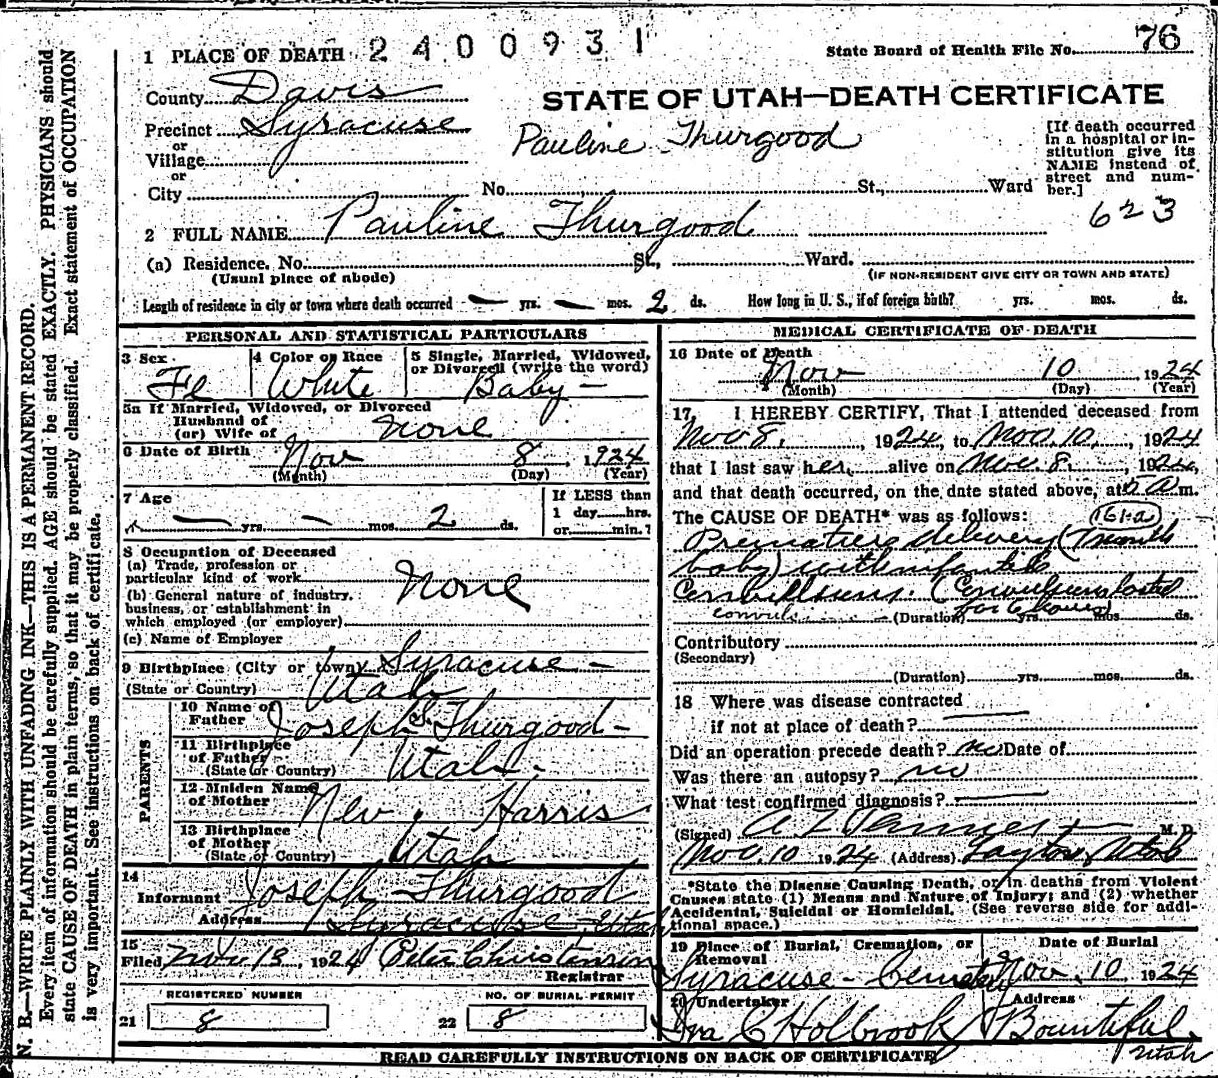 1 PLACE OF DEATH 2400931
State Board of Health File No. 76
County Davis
STATE OF UTAH—DEATH CERTIFICATE
Precinct Syracuse
or
Village
or
City
Pauline Thurgood
[If death occurred in a hospital or institution give its NAME instead of street and number.]
No. St., Ward
623
2 FULL NAME Pauline Thurgood
(a) Residence. No. St., Ward.
(Usual place of abode)
(IF NON-RESIDENT GIVE CITY OR TOWN AND STATE)
Length of residence in city or town where death occurred — yrs. — mos. 2 ds. How long in U. S., if of foreign birth? yrs. mos. ds.
PERSONAL AND STATISTICAL PARTICULARS
3 Sex Fe
4 Color or Race White
5 Single, Married, Widowed, or Divorced (write the word) Baby —
5a If Married, Widowed, or Divorced
Husband of
(or) Wife of None
6 Date of Birth Nov 8 1924
(Month) (Day) (Year)
7 Age — yrs. — mos. 2 ds.
If LESS than
1 day hrs.
or min.?
8 Occupation of Deceased
(a) Trade, profession or particular kind of work None
(b) General nature of industry, business, or establishment in which employed (or employer)
(c) Name of Employer
9 Birthplace (City or town) Syracuse —
(State or Country) Utah
PARENTS
10 Name of Father Joseph S. Thurgood —
11 Birthplace of Father Utah -
(State or Country)
12 Maiden Name of Mother Nev . Harris
13 Birthplace of Mother Utah
(State or Country)
14
Informant Joseph Thurgood
Address Syracuse, Utah
15
Filed Nov. 13, 1924 Peter Christensen
Registrar
REGISTERED NUMBER
21 8
NO. OF BURIAL PERMIT
22 8
MEDICAL CERTIFICATE OF DEATH
16 Date of Death
Nov 10 1924
(Month) (Day) (Year)
17, I HEREBY CERTIFY, That I attended deceased from
Nov 8, 1924, to Nov. 10, 1924
that I last saw her alive on Nov. 8, 1924,
and that death occurred, on the date stated above, at 5 a m.
The CAUSE OF DEATH* was as follows: 161-a
delivery (7 month
baby) with infantile
Convulsions lasted
for 6 hours)
(Duration) yrs. mos. ds.
Contributory
(Secondary)
(Duration) yrs. mos. ds.
18 Where was disease contracted
if not at place of death?
Did an operation precede death? no Date of
Was there an autopsy? no
What test confirmed diagnosis?
(Signed) A Z Tanner M. D.
Nov. 10 1924 (Address) Layton, Utah
*State the Disease Causing Death, or, in deaths from Violent Causes state (1) Means and Nature of Injury; and (2) whether Accidental, Suicidal or Homicidal. (See reverse side for additional space.)
19 Place of Burial, Cremation, or Removal
Syracuse - Cemetery
Date of Burial
Nov. 10 1924
20 Undertaker
Ira C Holbrook
Address
Bountiful.
Utah
READ CAREFULLY INSTRUCTIONS ON BACK OF CERTIFICATE
N. B.—WRITE PLAINLY WITH UNFADING INK—THIS IS A PERMANENT RECORD.
Every item of information should be carefully supplied. AGE should be stated EXACTLY. PHYSICIANS should
state CAUSE OF DEATH in plain terms, so that it may be properly classified. Exact statement of OCCUPATION
is very important. See instructions on back of certificate.